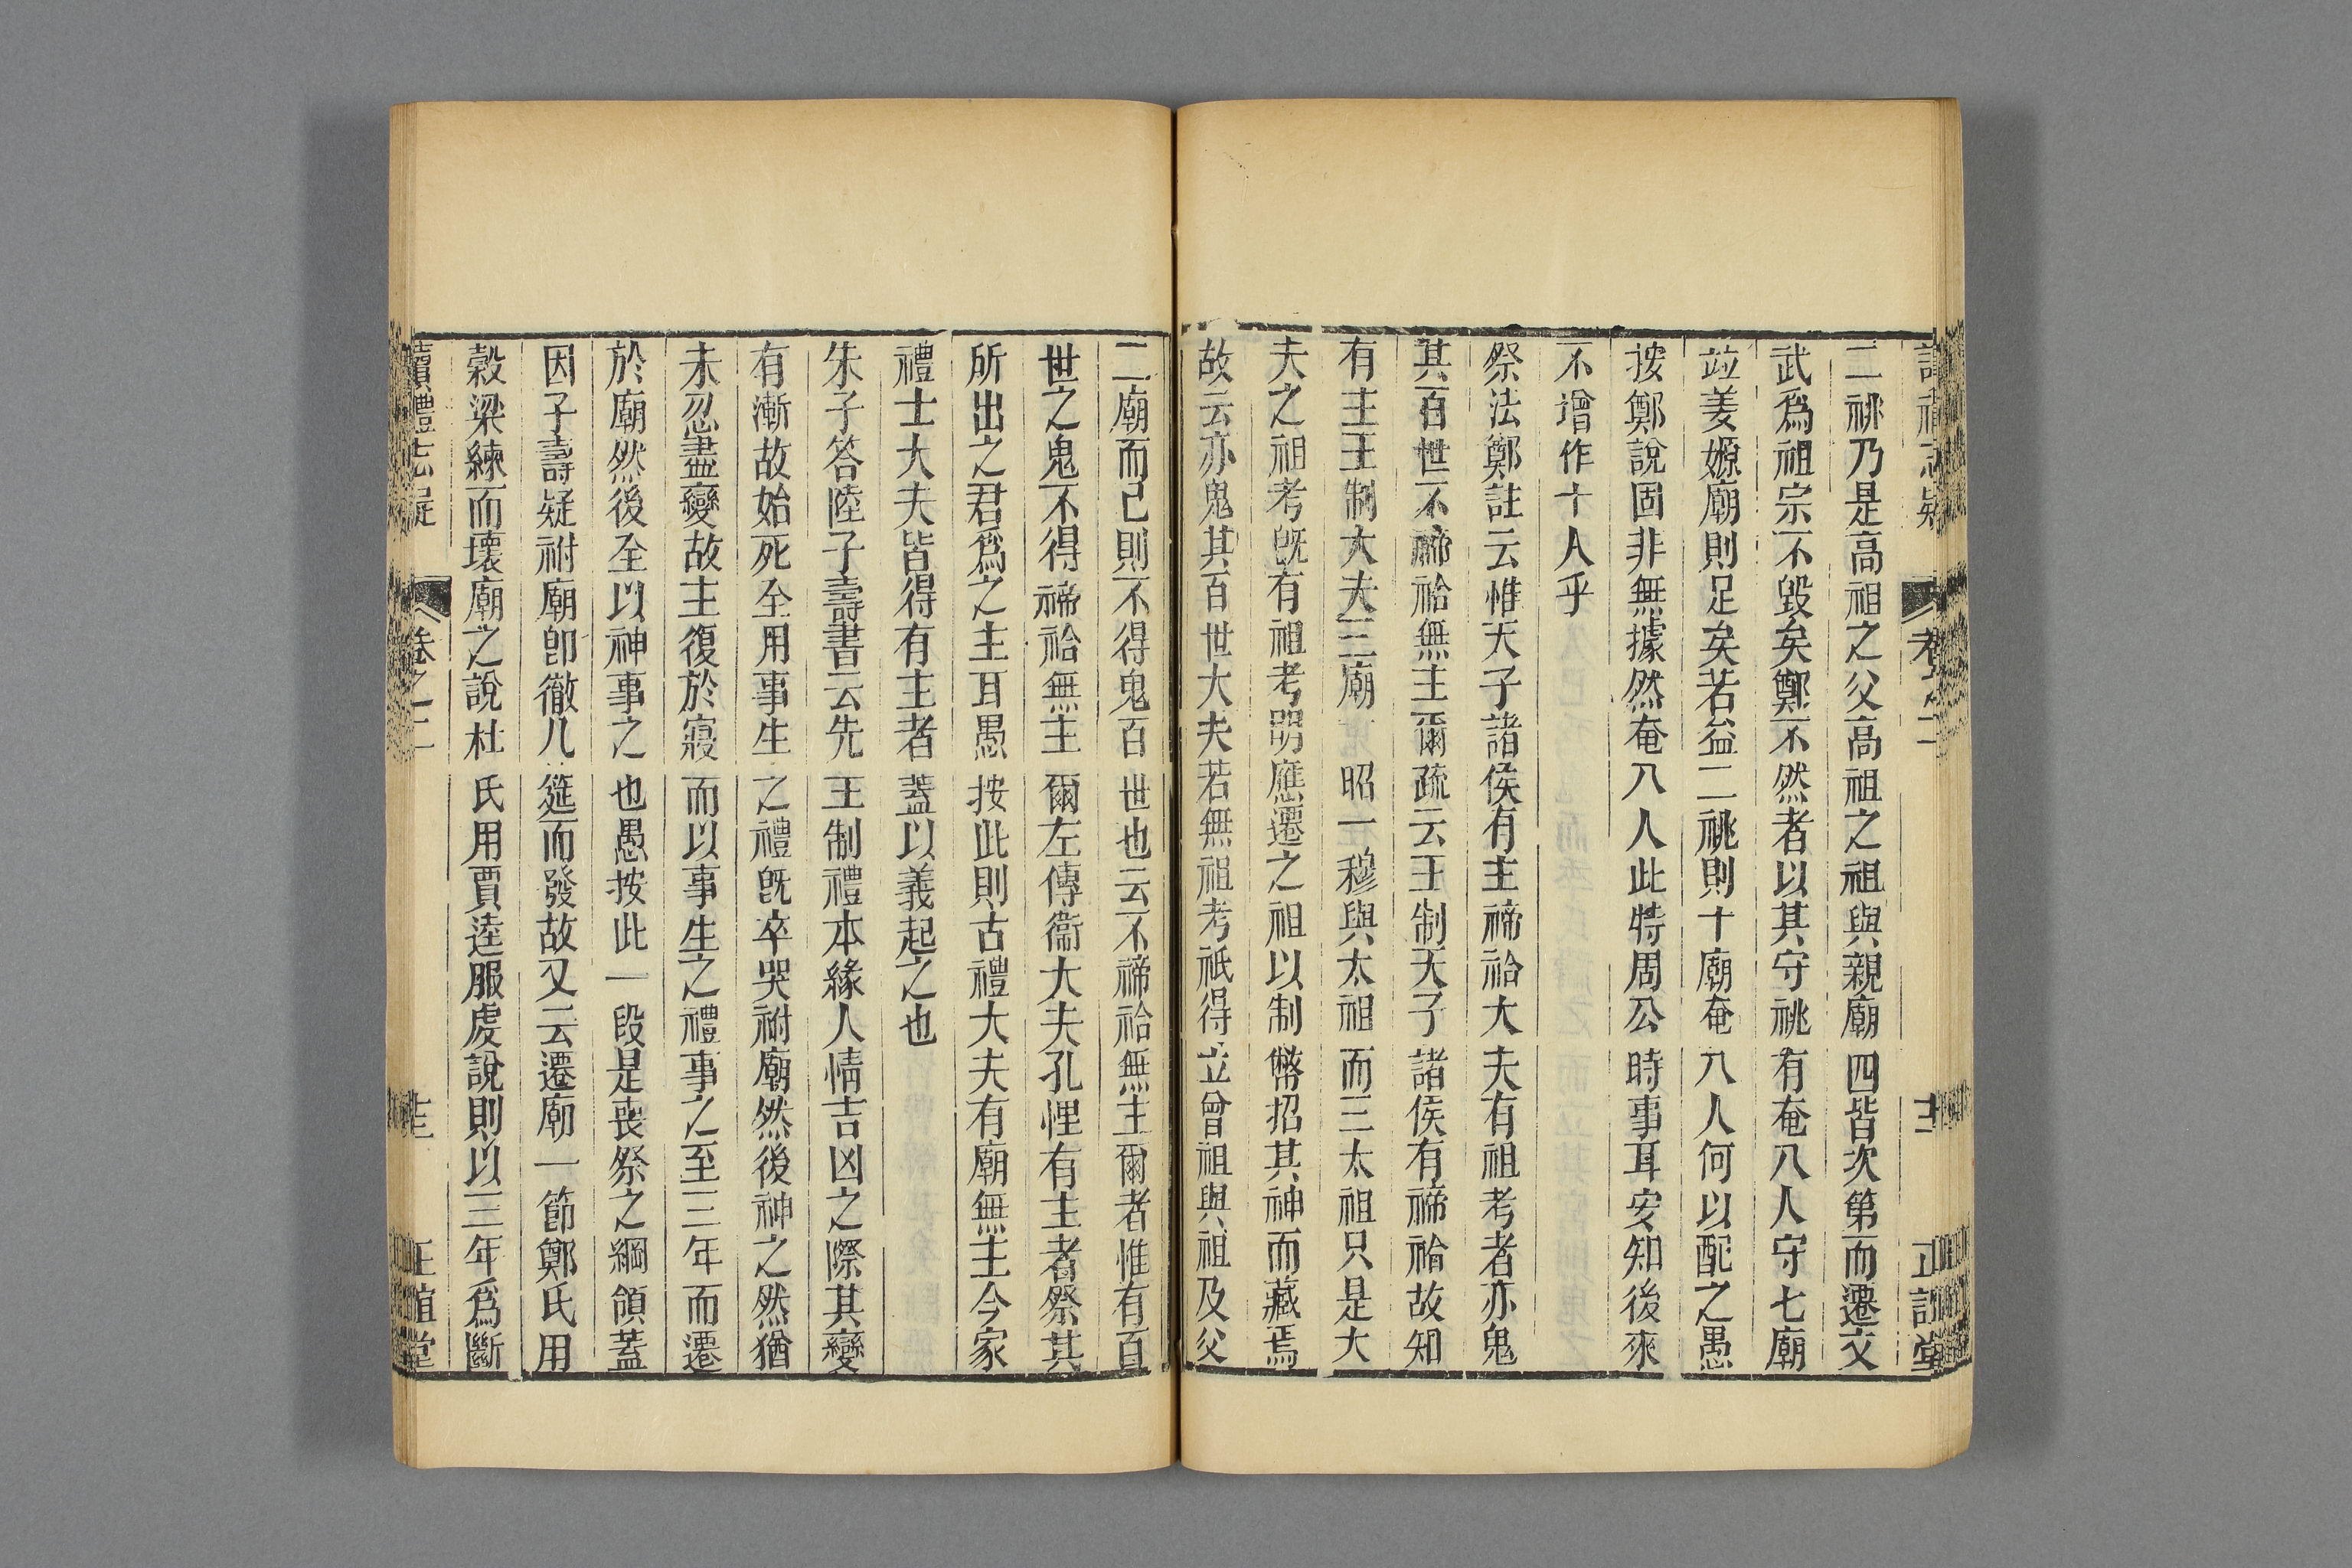 讀禮志疑 卷之二 十二 正誼堂
二祧乃是高祖之父高祖之祖與親廟四皆次第而遷文
武爲祖宗不毀矣鄭不然者以其守祧有奄八人守七廟
竝姜嫄廟則足矣若益二祧則十廟奄八人何以配之愚
按鄭說固非無據然奄八人此特周公時事耳安知後來
不增作十人乎
祭法鄭註云惟天子諸侯有主禘祫大夫有祖考者亦鬼
其百世不禘祫無主爾疏云王制天子諸侯有禘祫故知
有主王制大夫三廟一昭一穆與太祖而三太祖只是大
夫之祖考旣有祖考明應遷之祖以制幣招其神而藏焉
故云亦鬼其百世大夫若無祖考祇得立曾祖與祖及父
二廟而已則不得鬼百世也云不禘祫無主爾者惟有百
世之鬼不得禘祫無主爾左傳衞大夫孔悝有主者祭其
所出之君爲之主耳愚按此則古禮大夫有廟無主今家
禮士大夫皆得有主者蓋以義起之也
朱子答陸子壽書云先王制禮本緣人情吉凶之際其變
有漸故始死全用事生之禮旣卒哭祔廟然後神之然猶
未忍盡變故主復於寢而以事生之禮事之至三年而遷
於廟然後全以神事之也愚按此一段是喪祭之綱領蓋
因子壽疑祔廟卽徹几筵而發故又云遷廟一節鄭氏用
穀梁練而壞廟之說杜氏用賈逵服虔說則以三年爲斷
讀禮志疑 卷之二 十三 正誼堂